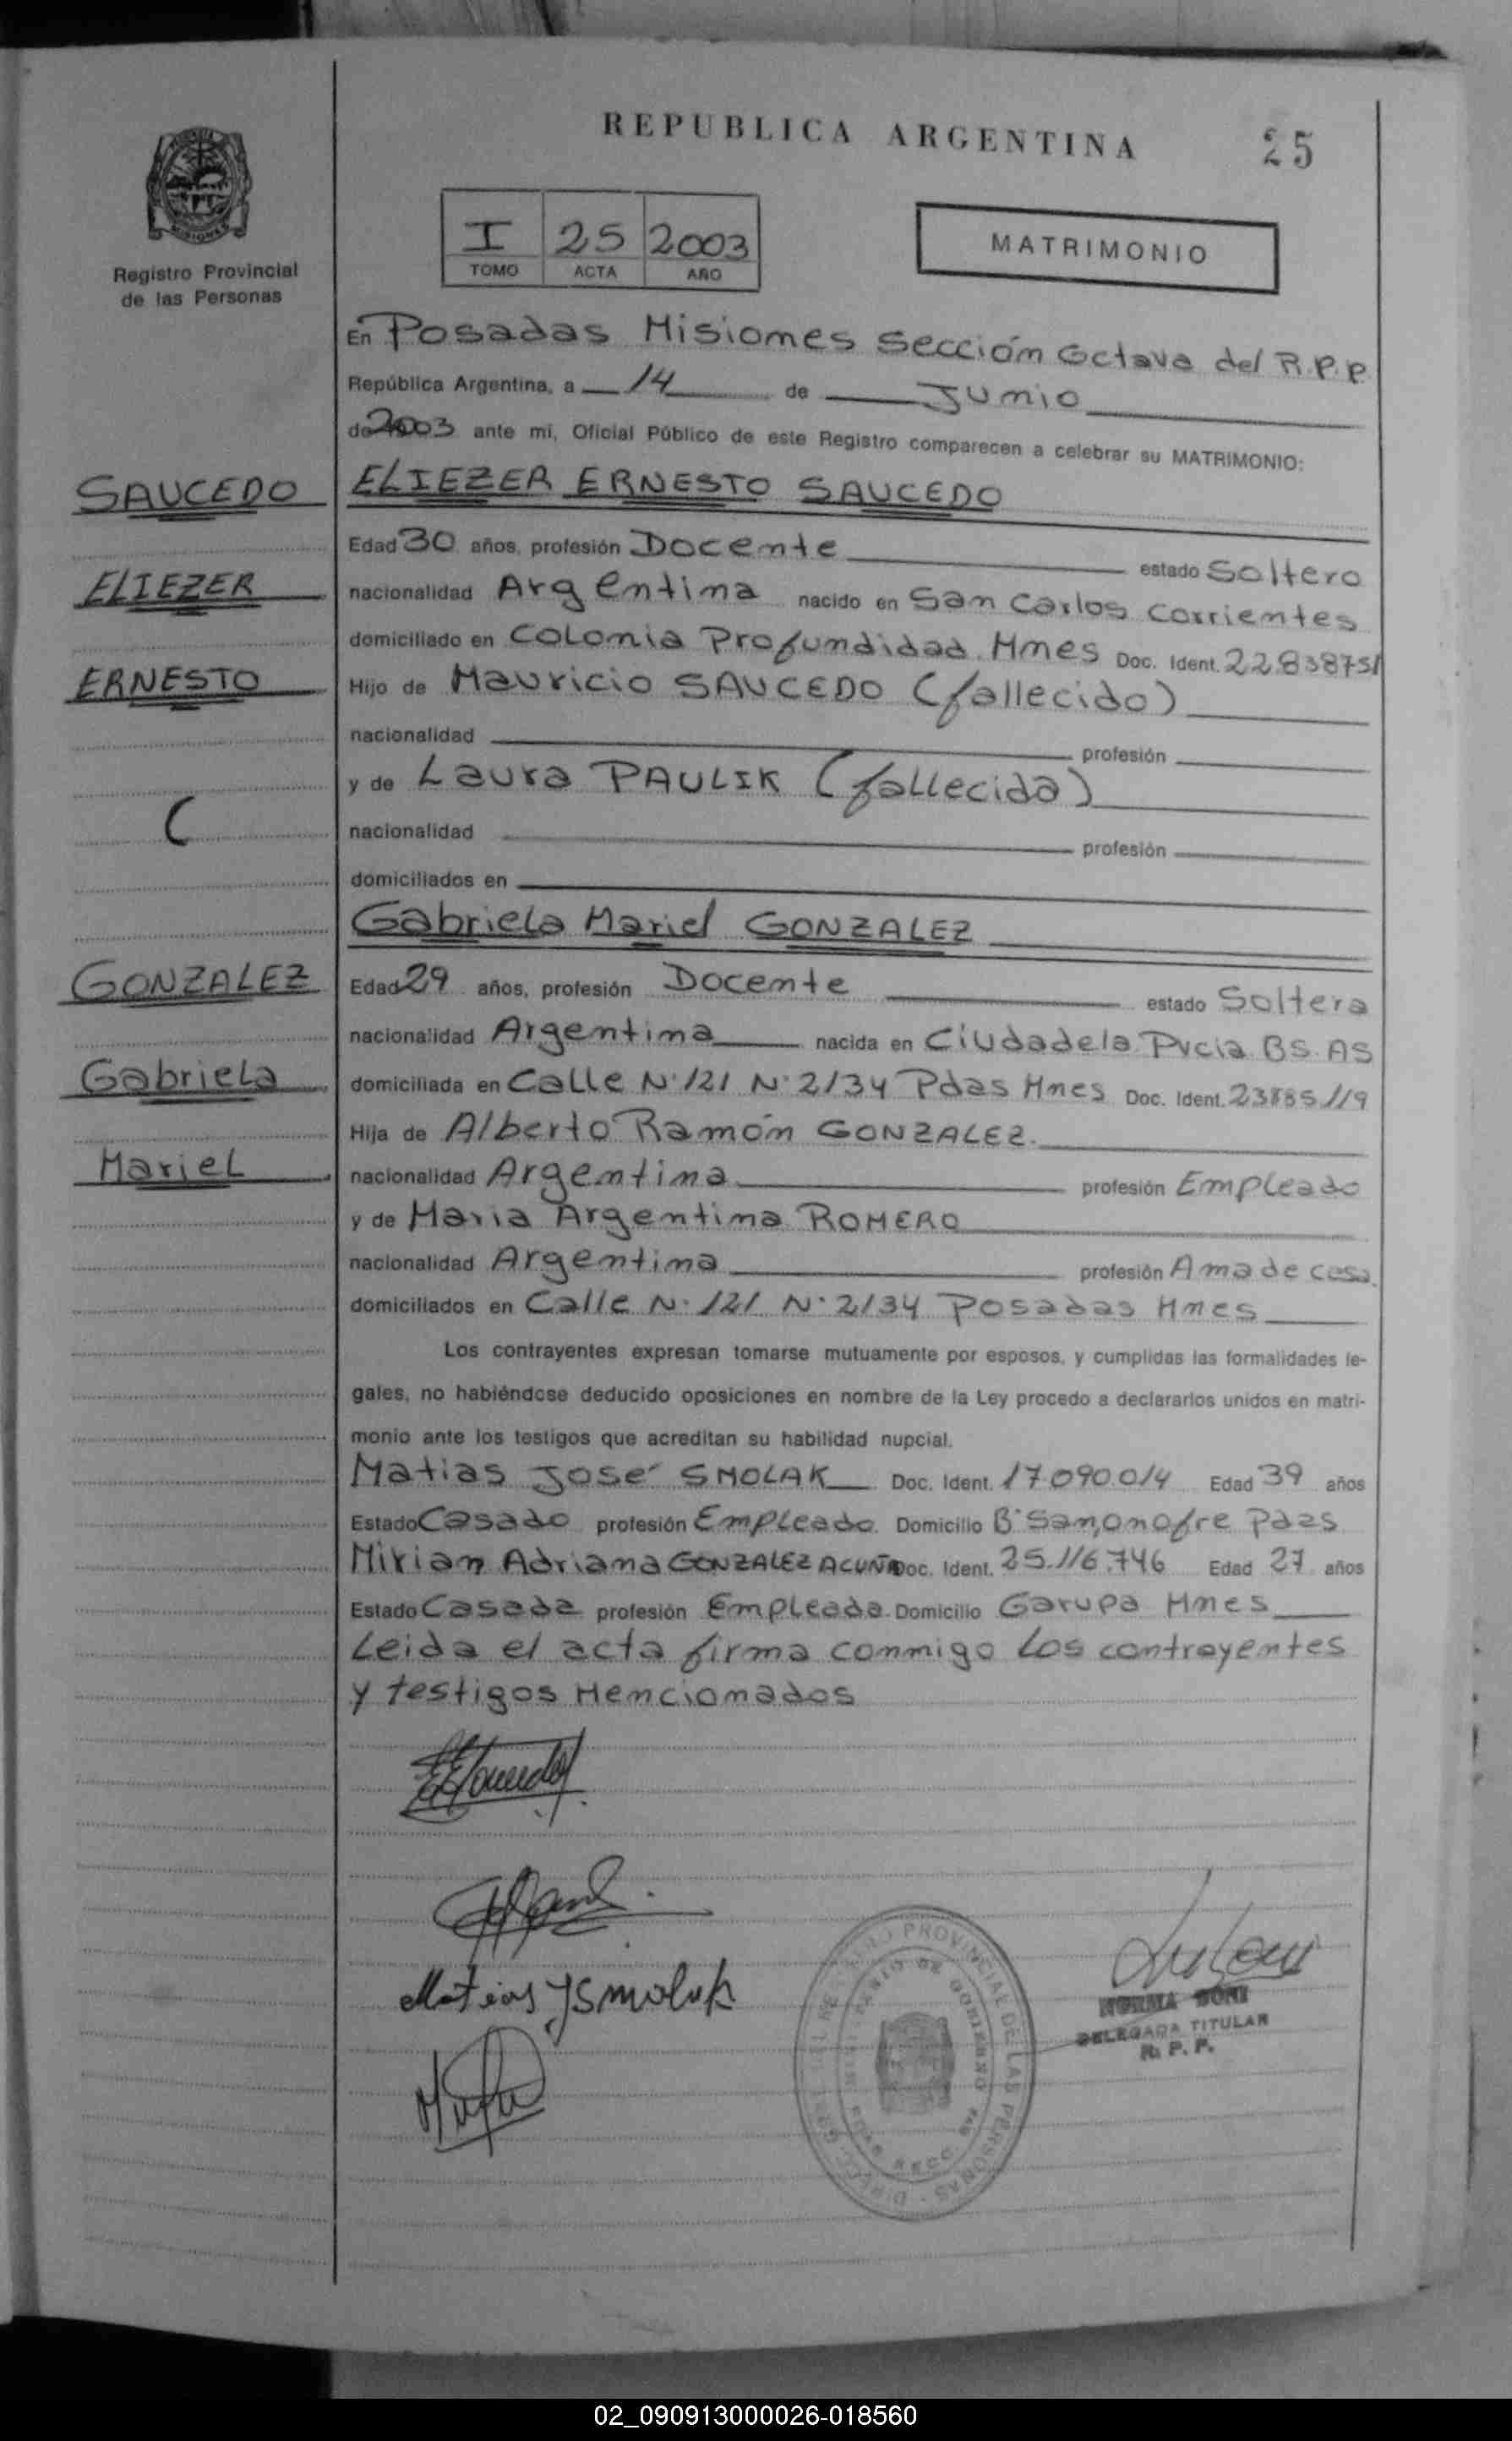 REPUBLICA ARGENTINA
25
Registro Provincial
de las Personas
I 25 2003
TOMO ACTA AÑO
MATRIMONIO
En Posadas Misiones Sección Octava del R.P.P.
República Argentina, a 14 de Junio
de 2003 ante mi, Oficial Público de este Registro comparecen a celebrar su MATRIMONIO:
SAUCEDO
ELIEZER ERNESTO SAUCEDO
Edad 30 años, profesión Docente estado Soltero
ELIEZER
nacionalidad Argentina nacido en San Carlos Corrientes
domiciliado en Colonia Profundidad Mnes Doc. Ident. 22.838751
ERNESTO
Hijo de Mauricio SAUCEDO (fallecido)
nacionalidad profesión
y de Laura PAULIK (fallecida)
(
nacionalidad profesión
domiciliados en
Gabriela Mariel GONZALEZ
GONZALEZ
Edad 29 años, profesión Docente estado Soltera
nacionalidad Argentina nacida en Ciudadela Pvcia BS. AS
Gabriela
domiciliada en Calle N° 121 N° 2134 Pdas Mnes Doc. Ident.
Hija de Alberto Ramón GONZALEZ.
Mariel
nacionalidad Argentina profesión Empleado
y de Maria Argentina ROMERO
nacionalidad Argentina profesión Ama de casa.
domiciliados en Calle N° 121 N° 2134 Posadas Mnes
Los contrayentes expresan tomarse mutuamente por esposos, y cumplidas las formalidades le-
gales, no habiéndose deducido oposiciones en nombre de la Ley procedo a declararlos unidos en matri-
monio ante los testigos que acreditan su habilidad nupcial.
Matias José SMOLAK Doc. Ident. 17.090.014 Edad 39 años
Estado Casado profesión Empleado. Domicilio B° San Onofre Pdas
Mirian Adriana GONZALEZ ACUÑA Doc. Ident. 25.116.746 Edad 27 años
Estado Casada profesión Empleada. Domicilio Garupa Mnes
Leida el acta firma conmigo los contrayentes
y testigos Mencionados
Matias J Smolak
NORMA
DELEGADA TITULAR
R. P. P.
PROVINCIAL DE LAS PERSONAS
02_090913000026-018560